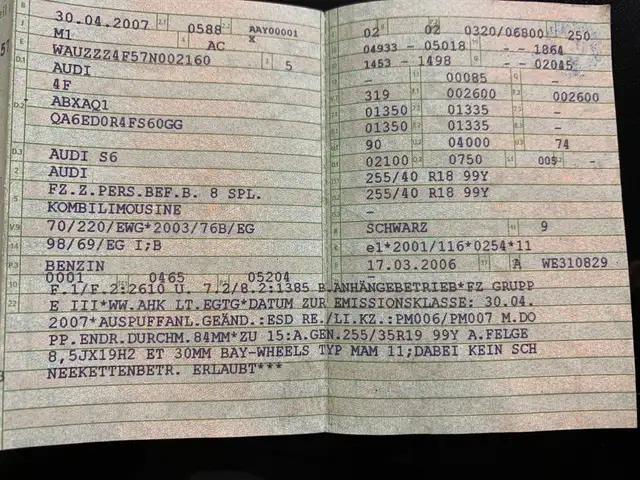 30.04.2007 0588 AAY00001
M1 AC X
WAUZZZ4F57N002160 5
AUDI
4F
ABXAQ1
QA6ED0R4FS60GG
AUDI S6
AUDI
FZ.Z.PERS.BEF.B. 8 SPL.
KOMBILIMOUSINE
70/220/EWG*2003/76B/EG
98/69/EG I;B
BENZIN
0001 0465 05204
02 02 0320/06800 250
04933 - 05018 - - 1864
1453 - 1498 - - 02045
- 00085 -
319 002600 002600
01350 01335 -
01350 01335 -
90 04000 74
02100 0750 005 -
255/40 R18 99Y
255/40 R18 99Y
-
-
SCHWARZ 9
e1*2001/116*0254*11
17.03.2006 A WE310829
F.1/F.2:2610 U. 7.2/8.2:1385 B.ANHÄNGEBETRIEB*FZ GRUPP
E III*WW.AHK LT.EGTG*DATUM ZUR EMISSIONSKLASSE: 30.04.
2007*AUSPUFFANL.GEÄND.:ESD RE./LI.KZ.:PM006/PM007 M.DO
PP.ENDR.DURCHM.84MM*ZU 15:A.GEN.255/35R19 99Y A.FELGE
8,5JX19H2 ET 30MM BAY-WHEELS TYP MAM 11;DABEI KEIN SCH
NEEKETTENBETR. ERLAUBT***